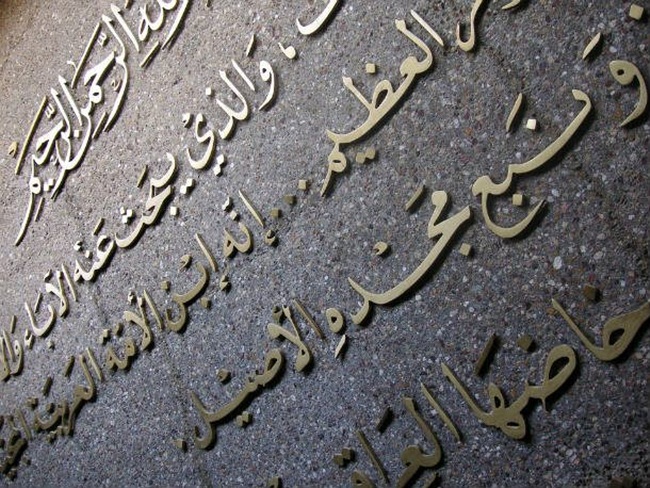 الله الرحمن الرحيم
والذي يبحث عنه الآباء
العظيم ... إنه ابن الأمة العربية
و نبع مجده الأصيل .
حاضنها العراق